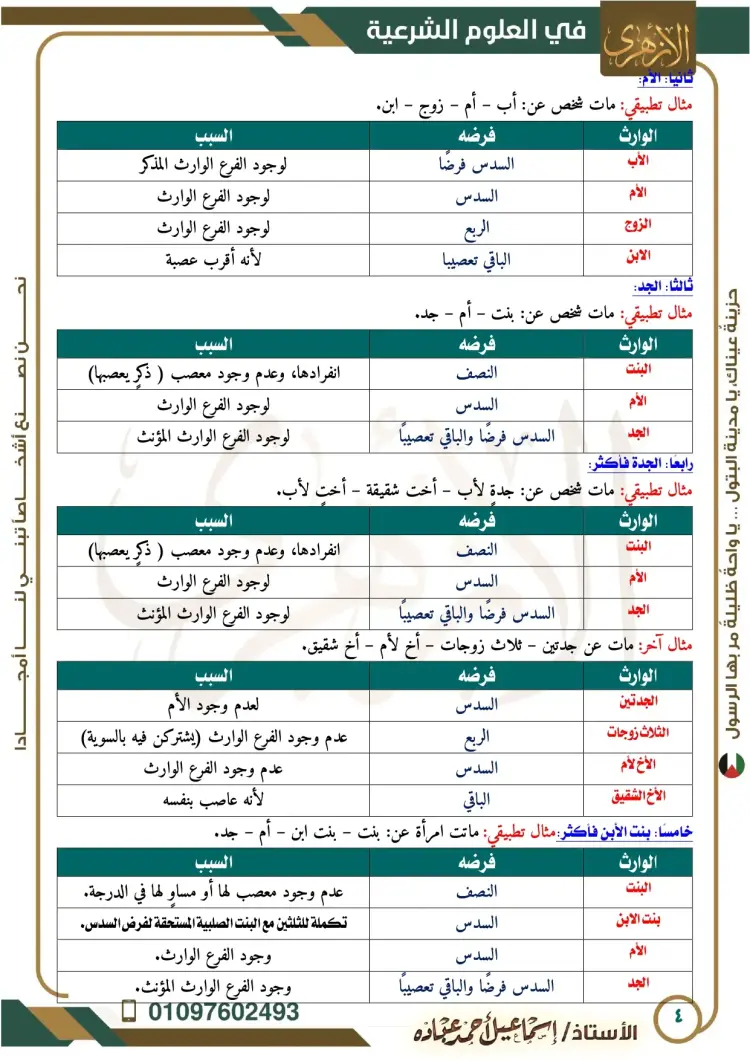 في العلوم الشرعية
الأزهري
ثانيا: الأم:
مثال تطبيقي: مات شخص عن: أب - أم - زوج - ابن.
الوارث فرضه السبب
الأب السدس فرضًا لوجود الفرع الوارث المذكر
الأم السدس لوجود الفرع الوارث
الزوج الربع لوجود الفرع الوارث
الابن الباقي تعصيبا لأنه أقرب عصبة
ثالثًا: الجد:
مثال تطبيقي: مات شخص عن: بنت - أم - جد.
الوارث فرضه السبب
البنت النصف انفرادها، وعدم وجود معصب ( ذكرٍ يعصبها)
الأم السدس لوجود الفرع الوارث
الجد السدس فرضًا والباقي تعصيبًا لوجود الفرع الوارث المؤنث
رابعًا: الجدة فأكثر:
مثال تطبيقي: مات شخص عن: جدةٍ لأب - أخت شقيقة - أختٍ لأب.
الوارث فرضه السبب
البنت النصف انفرادها، وعدم وجود معصب ( ذكرٍ يعصبها)
الأم السدس لوجود الفرع الوارث
الجد السدس فرضًا والباقي تعصيبًا لوجود الفرع الوارث المؤنث
مثال آخر: مات عن جدتين - ثلاث زوجات - أخ لأم - أخ شقيق.
الوارث فرضه السبب
الجدتين السدس لعدم وجود الأم
الثلاث زوجات الربع عدم وجود الفرع الوارث (يشتركن فيه بالسوية)
الأخ لأم السدس عدم وجود الفرع الوارث
الأخ الشقيق الباقي لأنه عاصب بنفسه
خامسًا: بنت الأبن فأكثر: مثال تطبيقي: ماتت امرأة عن: بنت - بنت ابن - أم - جد.
الوارث فرضه السبب
البنت النصف عدم وجود معصب لها أو مساوٍ لها في الدرجة.
بنت الابن السدس تكملة للثلثين مع البنت الصلبية المستحقة لفرض السدس.
الأم السدس وجود الفرع الوارث.
الجد السدس فرضًا والباقي تعصيبًا وجود الفرع الوارث المؤنث.
حزينةٌ عيناك، يا مدينة البتول ... يا واحةً ظليلةً مر بها الرسول
نحن نصنع أشخاصاً تبني لنا أمجادا
٤
الأستاذ/ إسماعيل أحمد عباده
01097602493